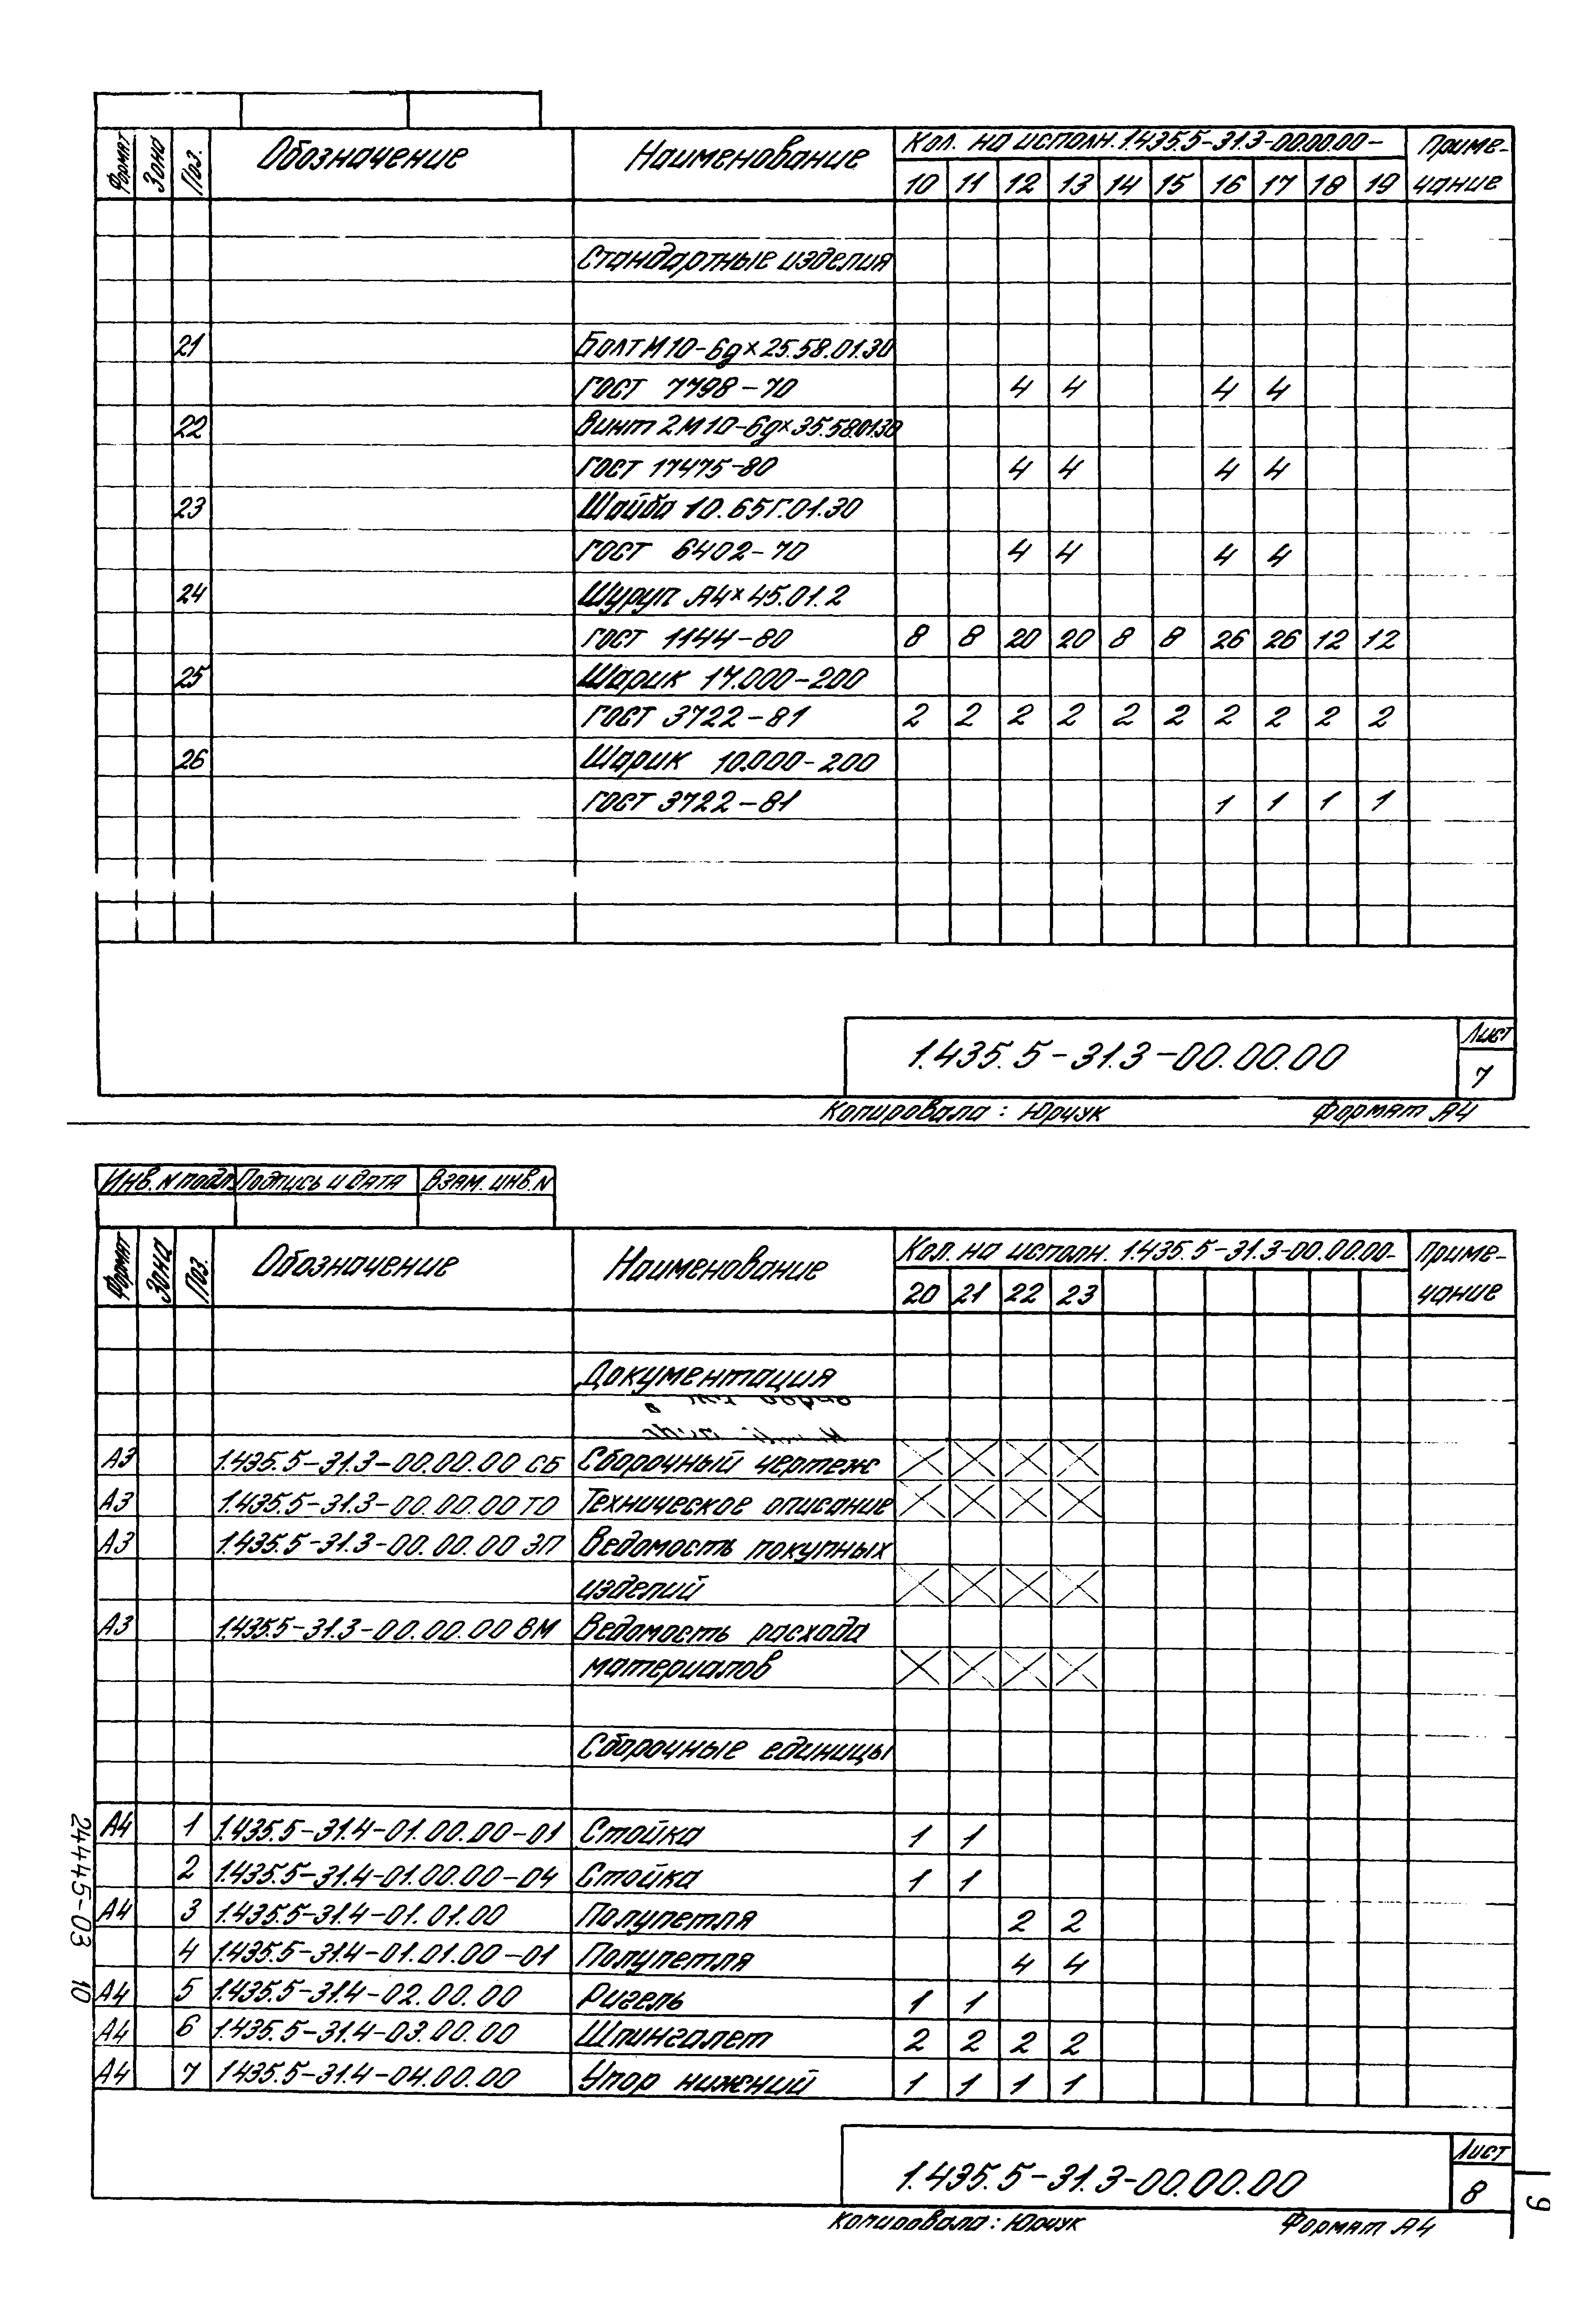 Формат Зона Поз. Обозначение Наименование Кол. на исполн. 1.435.5-31.3-00.00.00- Приме-
10 11 12 13 14 15 16 17 18 19 чание
Стандартные изделия
21 Болт М10-6g×25.58.01.30
ГОСТ 7798-70 4 4 4 4
22 Винт 2М10-6g×35.58.01.30
ГОСТ 17475-80 4 4 4 4
23 Шайба 10.65Г.01.30
ГОСТ 6402-70 4 4 4 4
24 Шуруп А4×45.01.2
ГОСТ 1144-80 8 8 20 20 8 8 26 26 12 12
25 Шарик 17.000-200
ГОСТ 3722-81 2 2 2 2 2 2 2 2 2 2
26 Шарик 10.000-200
ГОСТ 3722-81 1 1 1 1
1.435.5-31.3-00.00.00 Лист
7
Копировала: Юрчук Формат А4
Инв. N подл. Подпись и дата Взам. инв. N
Формат Зона Поз. Обозначение Наименование Кол. на исполн. 1.435.5-31.3-00.00.00- Приме-
20 21 22 23 чание
Документация
А3 1.435.5-31.3-00.00.00 СБ Сборочный чертеж
А3 1.435.5-31.3-00.00.00 ТО Техническое описание
А3 1.435.5-31.3-00.00.00 ЭП Ведомость покупных
изделий
А3 1.435.5-31.3-00.00.00 ВМ Ведомость расхода
материалов
Сборочные единицы
А4 1 1.435.5-31.4-01.00.00-01 Стойка 1 1
2 1.435.5-31.4-01.00.00-04 Стойка 1 1
А4 3 1.435.5-31.4-01.01.00 Полупетля 2 2
4 1.435.5-31.4-01.01.00-01 Полупетля 4 4
А4 5 1.435.5-31.4-02.00.00 Ригель 1 1
А4 6 1.435.5-31.4-03.00.00 Шпингалет 2 2 2 2
А4 7 1.435.5-31.4-04.00.00 Упор нижний 1 1 1 1
24445-03 10
1.435.5-31.3-00.00.00 Лист
8
Копировала: Юрчук Формат А4
9